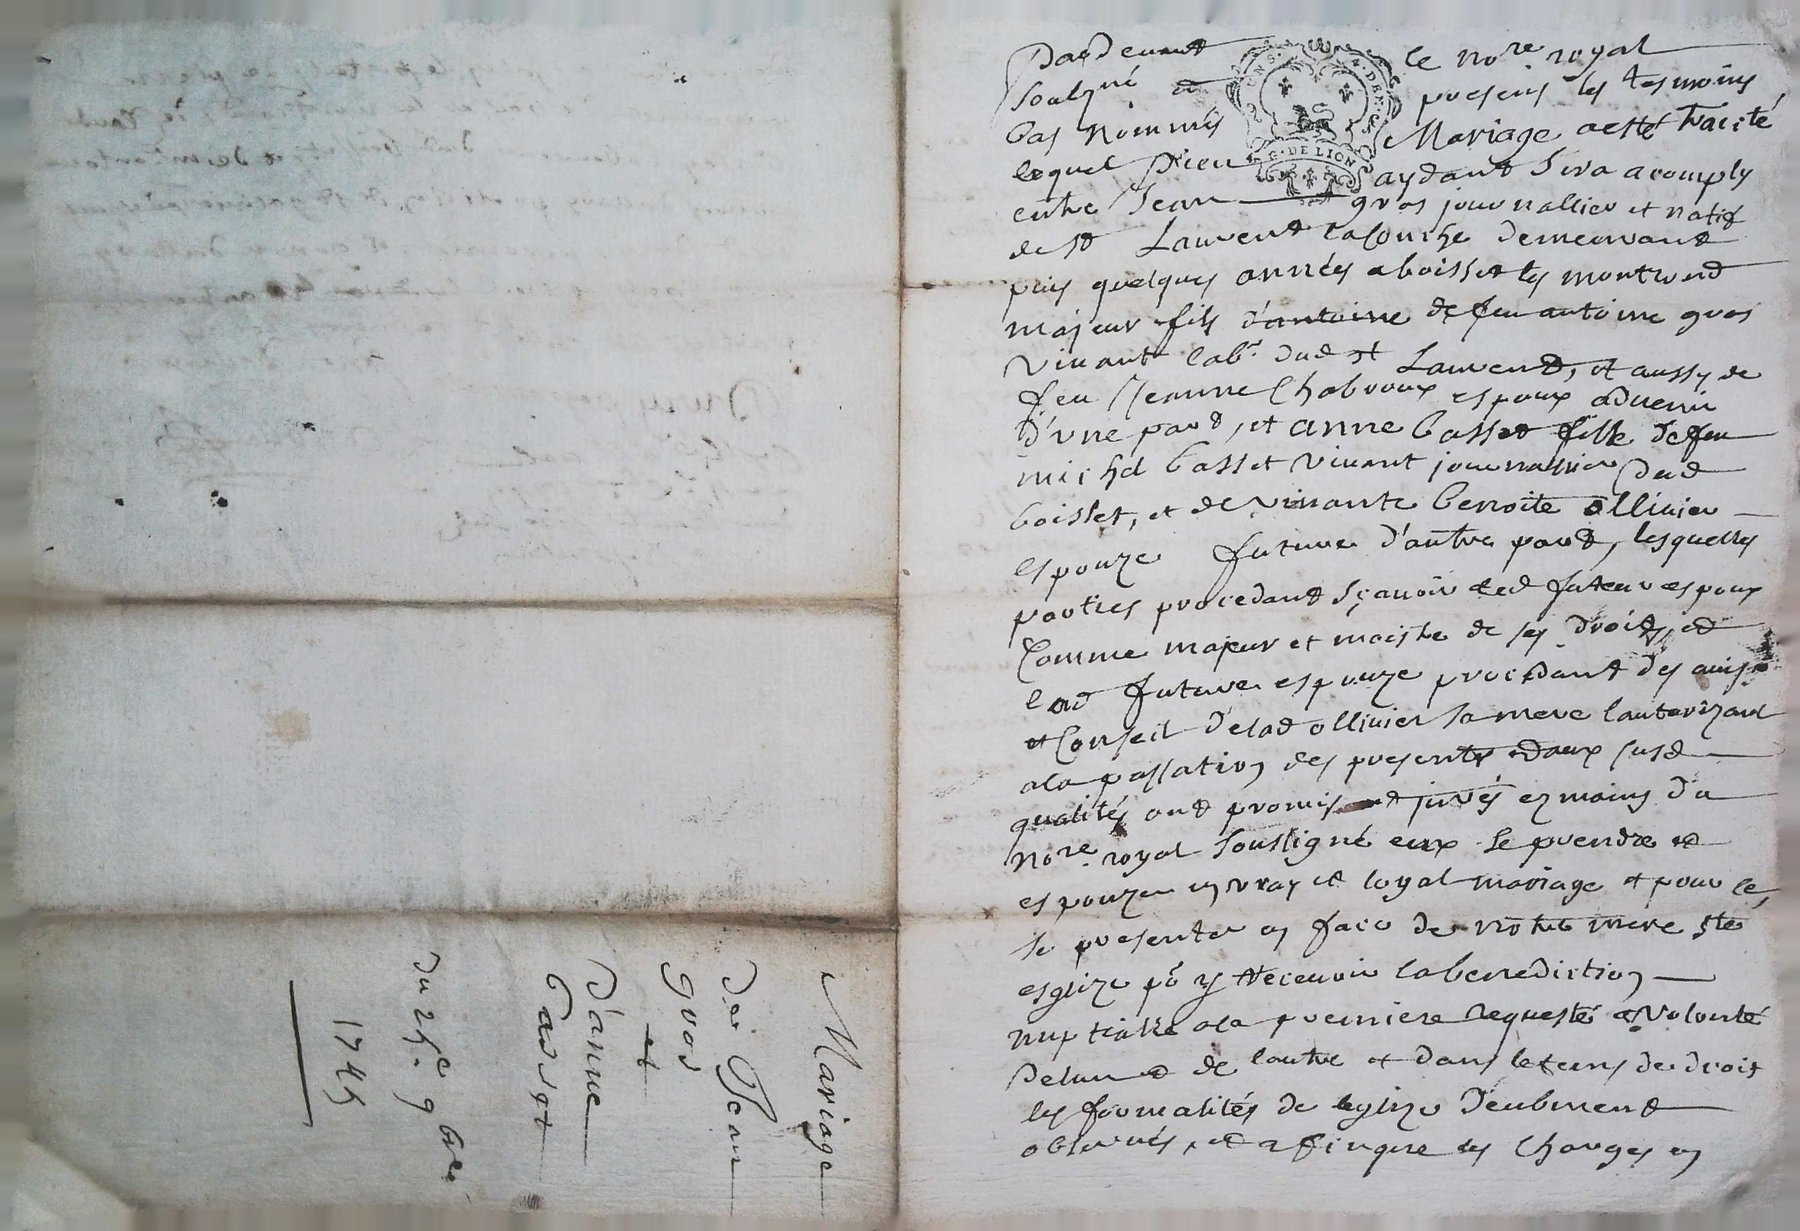 Mariage
De Jean
gros
et
D'anne
Basset
Du 25e 9bre
1745
Pardevant le nore royal
Soubzné et presens les tesmoins
bas nommés Mariage a esté traité
lequel Dieu aydant sera acomply
G. DE LION
entre Jean gros journallier et natif
de st Laurent la Conche demeurant
puis quelques années a boisset les montrond
majeur fils d'antoine de feu antoine gros
vivant labr. dud st Laurent, et aussy de
feu Jeanne Chabroux espoux advenir
D'une part, et anne basset fille de feu
michel basset vivant journallier dud
boisset, et de vivante benoite ollivier
espouze future d'autre part, lesquelles
parties procedant sçavoir led futeur espoux
Comme majeur et maistre de ses droits, et
lad future espouze procedant des avis
et Conseil de lad ollivier sa mere lautorizant
a la passation des presentes d'aux susd
qualités ont promis et jurés es mains du
nore. royal soussigné eux se prendre et
espouzer en vray et loyal mariage et pour ce,
se presenter en face de notre mere ste
esglize po y recevoir la benediction
nuptialle a la premiere requeste et volonté
de lun et de lautre et dans le tems de droit
les formalités de leglize deubment
observés, et affinque les charges en